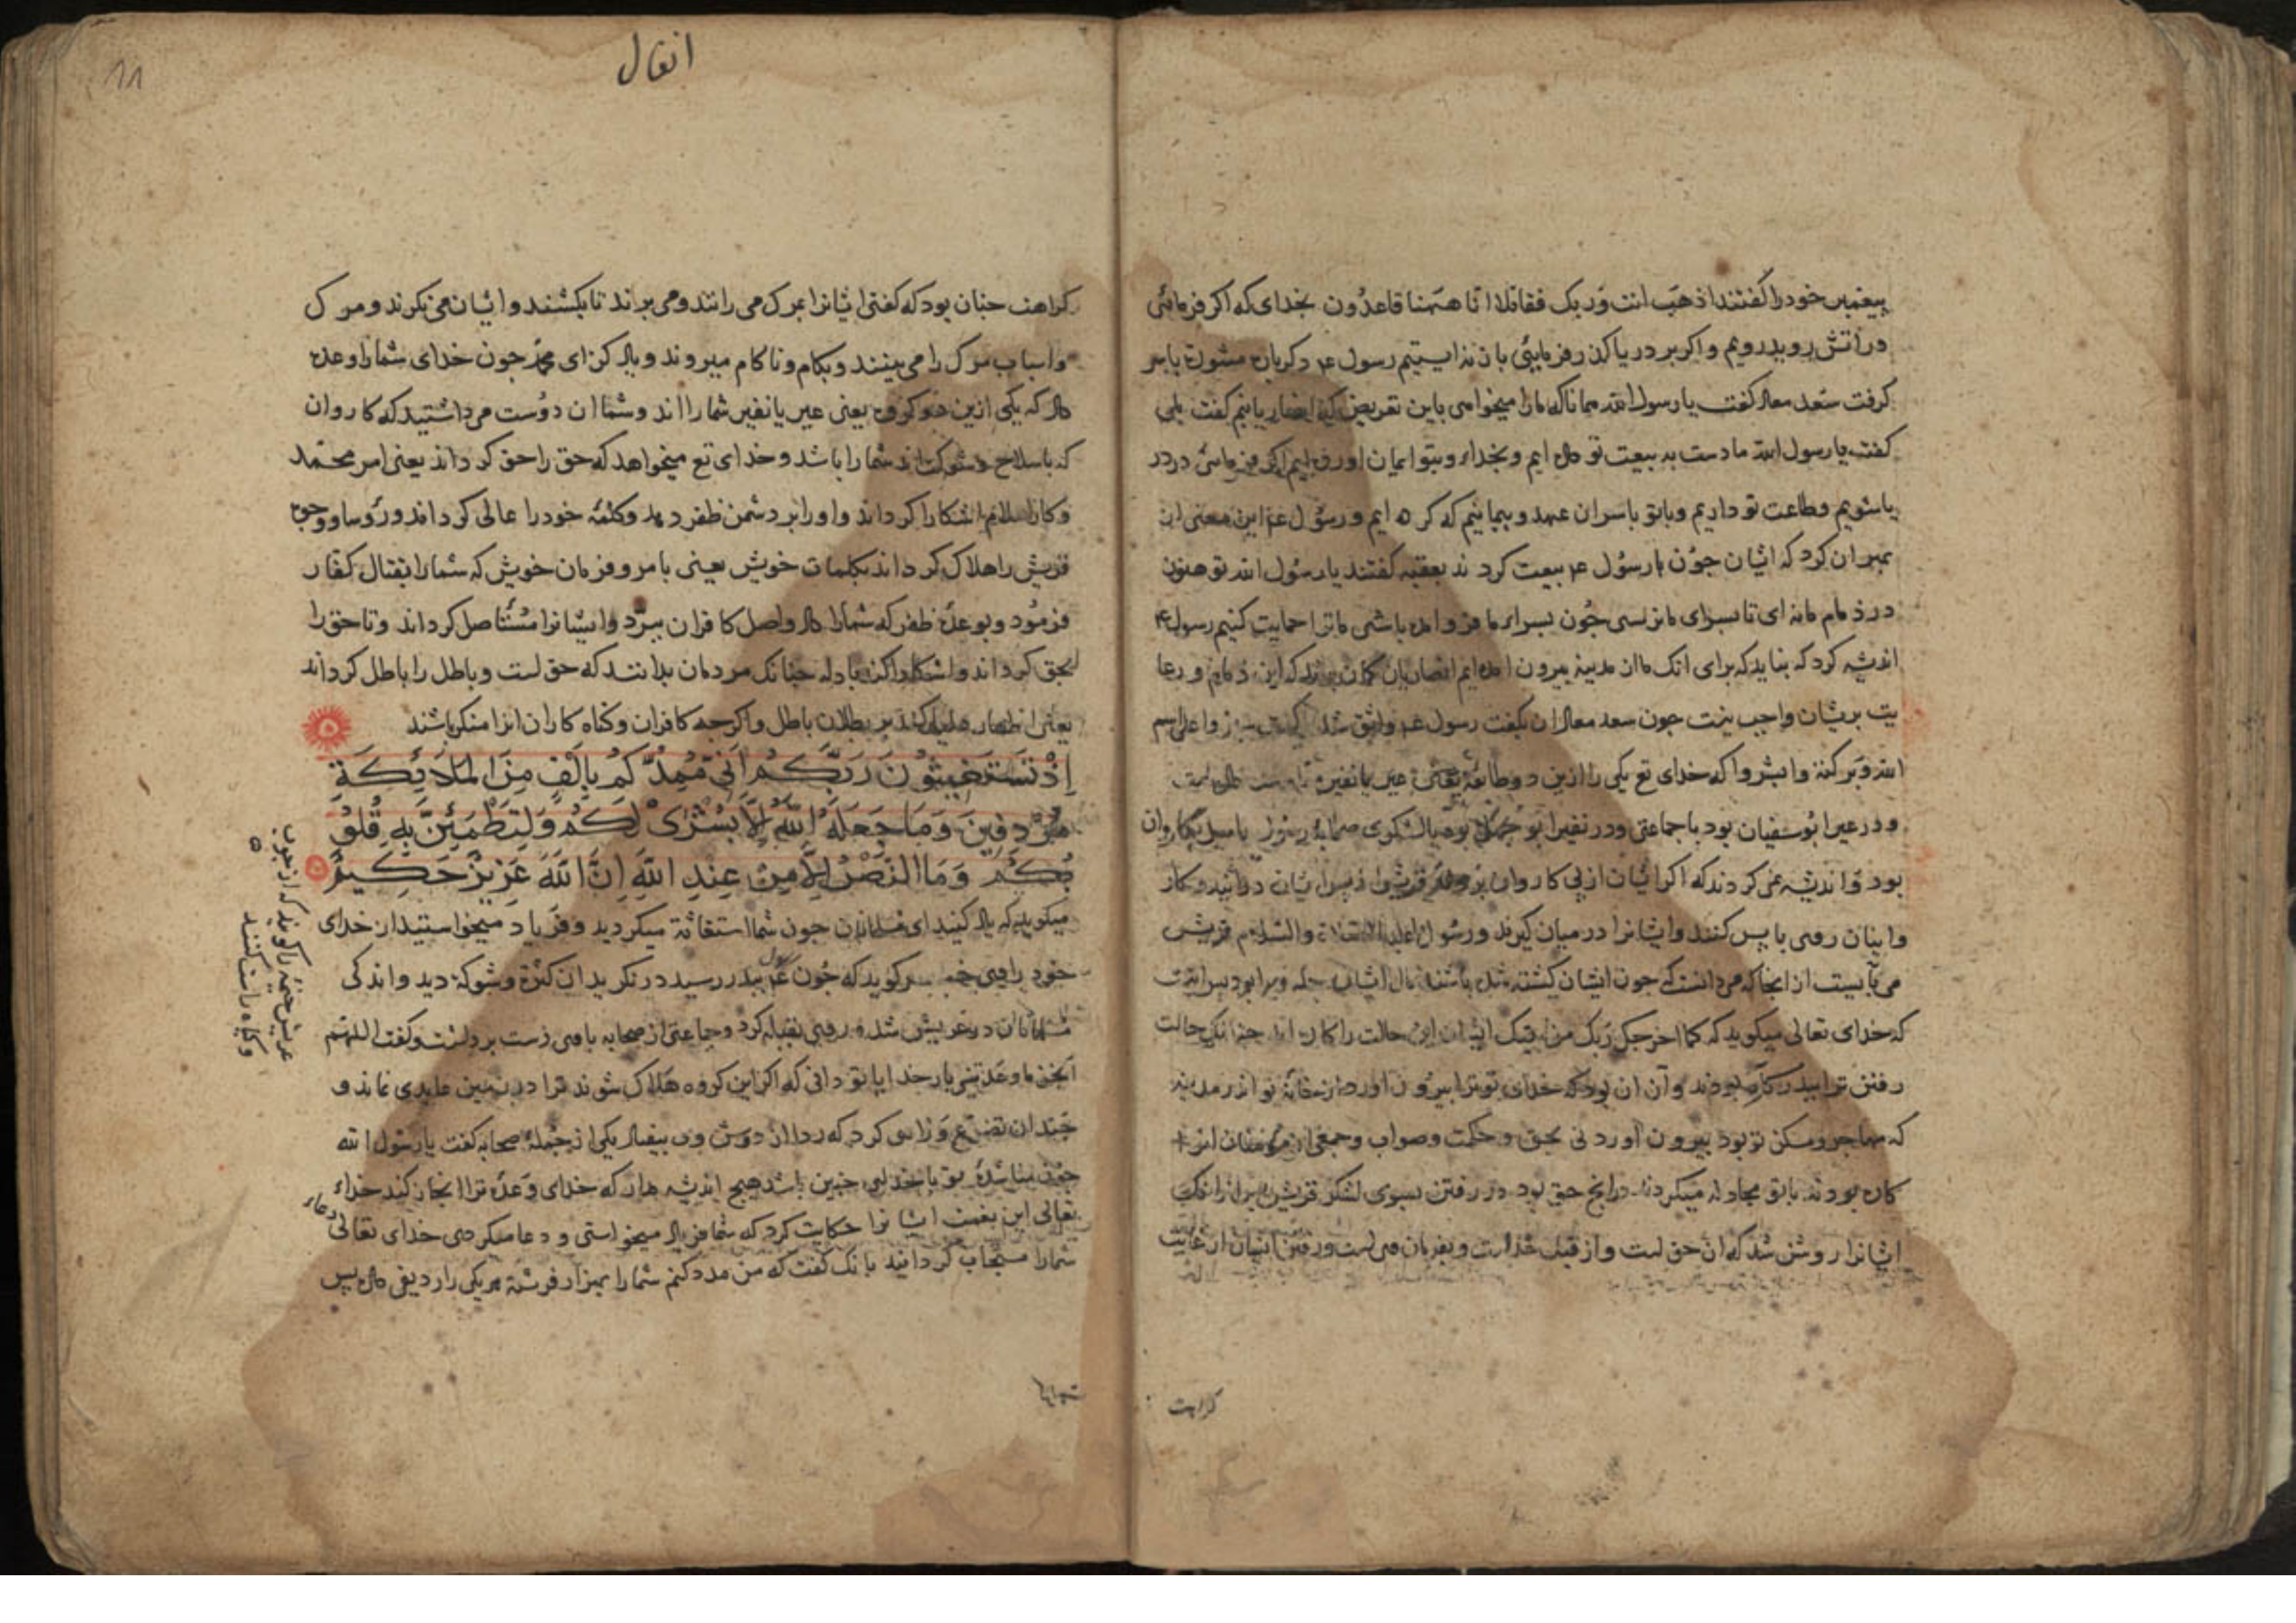 پیغمبر خود را گفتند اذهب انت وربک فقاتلا انا ههنا قاعدون بخدای که اکر فرمائی
در اتش رویم رویم واکر بر دریا کذر فرمایئی بان نه ایستیم رسول ع دکرباره مشورة باسر
کرفت سعد معاذ کفت یا رسول الله همانا که مارا میخواهی باین تعریض که انصاریانیم کفت بلی
کفت یا رسول الله ما دست به بیعت تو داده ایم وبخدای وبتو ایمان اورده ایم اکر فرمائی در
یا شویم وطاعت تو داریم وباتو باسران عهد وپیمانیم که کرده ایم ورسول ع این معنی از
بهر ان کرد که ایشان جون با رسول ع بیعت کردند بعقبه کفتند یا رسول الله تو هنوز
در ذمام ما نه ای تا بسرای ما نرسی جون بسرای ما فرو امده باشی ما ترا حمایت کنیم رسول ع
اندیشه کرد که نباید که برای انک ما از مدینه بیرون امده ایم انصاریان کمان برند که این ذمام ورعا
یت بریشان واجب نیست جون سعد معاذ ان بکفت رسول ع واثق شد کفت سیروا علی اسم
الله وبرکته وابشروا که خدای تع یکی را ازین دو طائفه یعنی عیر یا نفیر
ودر عیر ابوسفیان بود با جماعتی ودر نفیر ابو جهل بود با لشکری صحابه رسول را میل بکاروان
بود واندیشه می کردند که اکر ایشان از پی کاروان بروند قریش از پس ایشان درایند وکار
وایشان روی باپس کنند وایشانرا در میان کیرند ورسول علیه الصلاة والسلام قریش
می بایست از انجا که می دانست که جون ایشان کشته شده باشند مال ایشان جمله ویرا بود پس انست
که خدای تعالی میکوید که کما اخرجک ربک من بیتک ایشان این حالت را کاره اند جنانک حالت
رفتن ترا ببدر کاره بودند وآن ان بود که خدای تو ترا بیرون اورد از خانه تو از در مدینه
که مهاجر ومسکن تو بود بیرون آوردنی بحق وحکمت وصواب وجمعی از مؤمنان انرا
کاره بودند باتو مجادله میکردند درانج حق بود در رفتن بسوی لشکر قریش پس از انک
ایشانرا روشن شد که ان حق است واز قبل خداست وبفرمان وی است ورفتن ایشان از غایت
کراهت
انفال
11
کراهت جنان بود که کفتی ایشانرا بمرک می رانند ومی برند تا بکشند وایشان می نکرند ومرک
واسباب مرک را می بینند وبکام وناکام میروند ویاد کن ای محمد جون خدای شمارا وعده
داد که یکی ازین دو کروه یعنی عیر یا نفیر شمارا اند وشما ان دوست می داشتید که کاروان
که باسلاح وشوکت نه اند شمارا باشد وخدای تع میخواهد که حق را حق کرداند یعنی امر محمد
وکار اسلام اشکارا کرداند واورا بر دشمن ظفر دهد وکلمه خودرا عالی کرداند ورؤسا ووجوه
قریش را هلاک کرداند بکلمات خویش یعنی بامر وفرمان خویش که شمارا بقتال کفار
فرمود وبوعده ظفر که شمارا داد واصل کافران ببرد وایشانرا مستأصل کرداند وتا حق را
بحق کرداند واشکارا کند بادله جنانک مردمان بدانند که حق است وباطل را باطل کرداند
یعنی اظهار دلیل کند بر بطلان باطل واکرجه کافران وکناه کاران انرا منکر باشند
اِذْ تَسْتَغِيثُونَ رَبَّكُمْ اَنِّى مُمِدُّكُمْ بِاَلْفٍ مِنَ الْمَلَائِكَةِ
مُرْدِفِينَ وَمَا جَعَلَهُ اللّٰهُ اِلَّا بُشْرٰى لَكُمْ وَلِتَطْمَئِنَّ بِهِ قُلُوْ
بُكُمْ وَمَا النَّصْرُ اِلَّا مِنْ عِنْدِ اللّٰهِ اِنَّ اللّٰهَ عَزِيزٌ حَكِيمٌ
میکوید که یاد کنید ای مسلمانان جون شما استغاثة میکردید وفریاد میخواستید از خدای
خود راوی خبر کوید که جون رسول ع ببدر رسید در نکرید ان کثرة وشوکة دید واندکی
مسلمانان در عریش شد وروی بقبله کرد وجماعتی از صحابه باوی دست برداشت وکفت اللهم
انجز ما وعدتنی بار خدایا تو دانی که اکر این کروه هلاک شوند ترا در زمین عابدی نماند و
جندان تضرع وزاری کرد که ردا از دوش وی بیفتاد یکی از جمله صحابه کفت یا رسول الله
جون مناشدۀ تو با خدای جنین باشد هیچ اندیشه مدار که خدای وعدۀ ترا انجاز کند خدای
تعالی این بغیت ایشانرا حکایت کرد که شما فریاد میخواستی ودعا میکردی خدای تعالی دعاء
شمارا مستجاب کردانید بانک کفت که من مدد کنم شمارا بهزار فرشته هر یکی را ردیفی داد پس
عریش خیمه را کویند که از جوب
وکیاه راست کنند